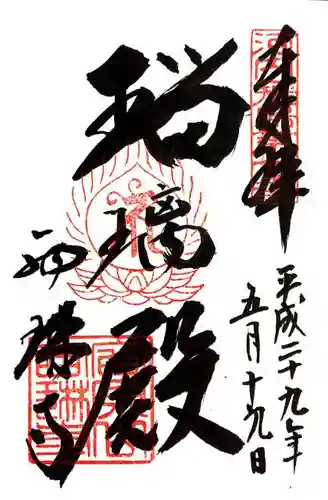 奉拝
平成二十九年
五月十九日
瑠璃殿
西琳寺